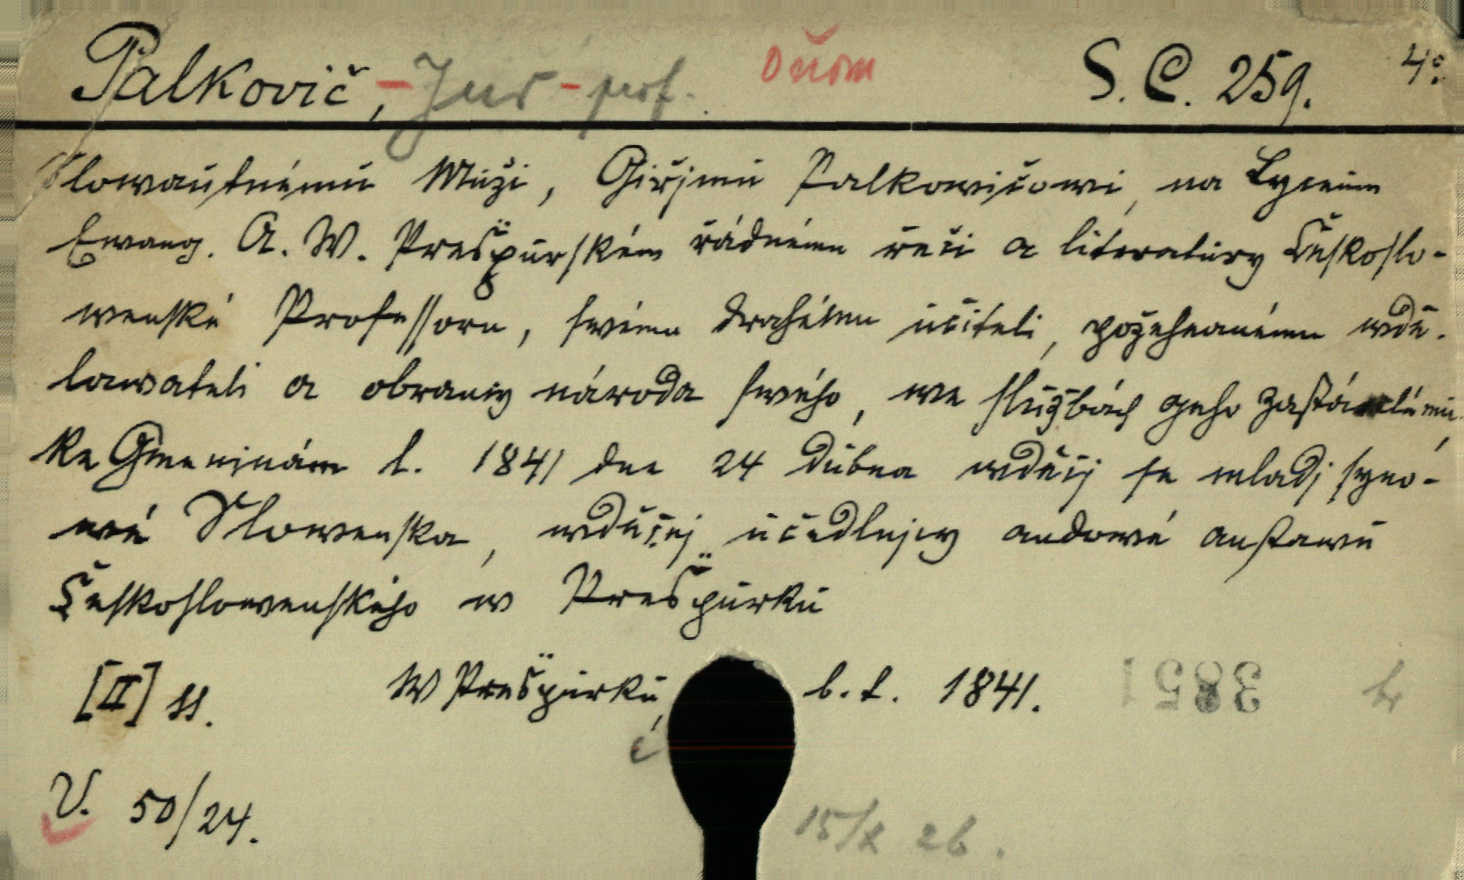 Palkovič, - Jur - prof. S. C. 259. 4°
Slowautnému Muži, Giřjmu Palkowičowi, na Lyceum
Ewang. A. W. Prešpurském řádnému řeči a literatury Českoslo-
wenské Professoru, swému drahému učiteli, požehnanému wdě-
lawateli a obrancy národa swého, we službách geho zastaralému,
ke Gmeninám l. 1841 dne 24 dubna wděčj se mladj syno-
wé Slowenska, wděčnj učedlnjcy audowé austawu
Českoslowenského w Prešpurku
[II] ss. W Prešpurku, b. t. 1841. 3851
V. 50/24.
15/X 26.